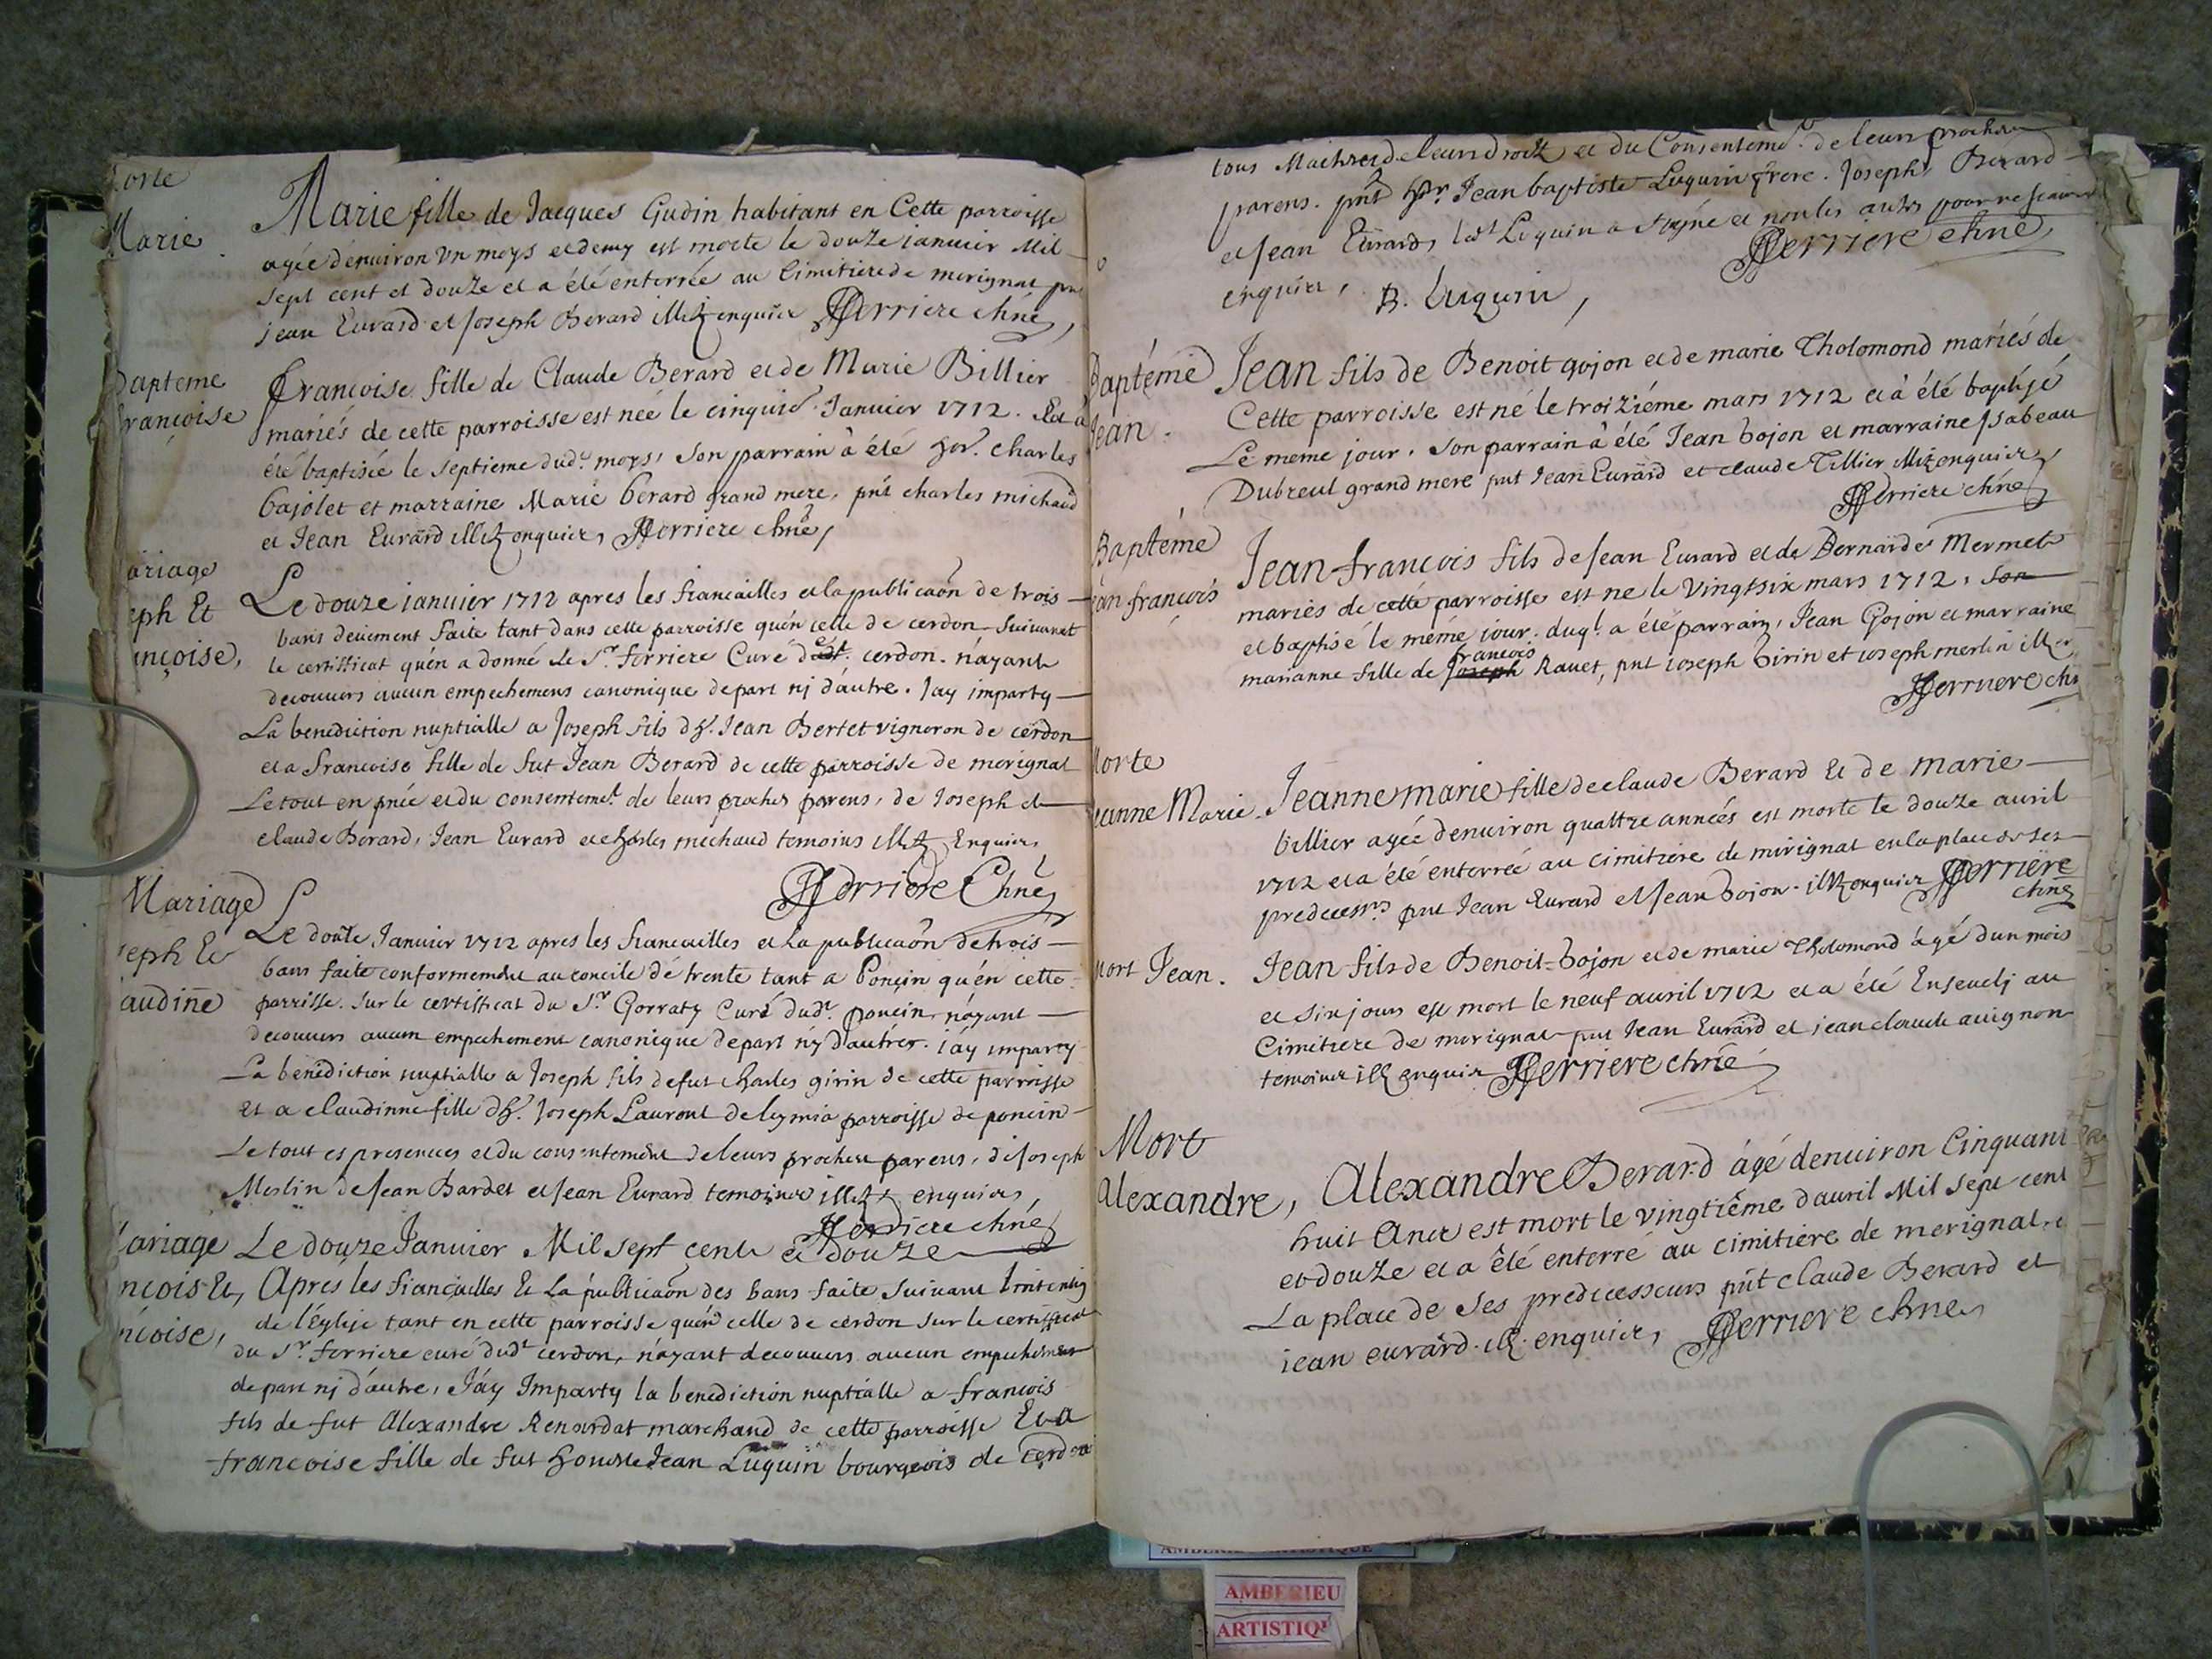 Morte
Marie
Marie fille de Jacques Gudin habitant en Cette parroisse
agée d'enuiron vn moys et demy est morte le douze ianuier Mil
sept cent et douze et a été enterrée au Cimitiere de merignat
jean Euvard et Joseph Berard illet enquis Ferriere chne
Bapteme
françoise
françoise fille de Claude Berard et de Marie Billier
mariés de cette parroisse est neé le cinquie Januier 1712. Et a
été baptisée le septieme dud. moys, son parrain à été hor. charles
bajolet et marraine Marie berard grand mere, pnt charles michaud
et Jean Eurard illet enquis, Ferriere chne
ariage
eph Et
ançoise,
Le douze ianuier 1712 apres les fiancailles et la publicaon de trois
bans deuement faite tant dans cette parroisse qu'en celle de cerdon suiuant
le certifficat qu'en a donné le Sr. ferriere Curé dudt. cerdon. n'ayant
decouuers aucun empechemens canonique de part nj d'autre. Jay imparty
La benediction nuptialle a Joseph fils d'h. Jean Bertet vigneron de cerdon
et a francoise fille de fut Jean Berard de cette parroisse de merignat
Le tout en pnce et du consentemet. de leurs proches parens, de Joseph et
claude Berard, Jean Eurard et charles michaud temoins illet Enquis,
Ferriere Chne
Mariage
seph Et
audine
Le douze Januier 1712 apres les fiancailles et la publicaon de trois
bans faite conformement au concile de trente tant a Poncin qu'en cette
parrisse. sur le certifficat du Sr. Gorraty Curé dudt. poncin. n'ayant
decouuers aucum empechement canonique de part ny d'autres. i'ay imparty
La benediction nuptialle a Joseph fils de fut charles girin de cette parroisse
et a claudinne fille d'h. Joseph Laurent de leymia parroisse de poncin
Le tout es presences et du consentement de leurs proches parens, de Joseph
Merlin de Jean Bardet et Jean Eurard temoins illet enquis,
Ferriere chne
ariage
ncois Et,
ncoise,
Le douze Januier Mil sept cents et douze
Apres les fiançailles Et La publicaon des bans faite suiuant l'intention
de l'église tant en cette parroisse qu'en celle de cerdon sur le certifficat
du Sr. ferriere curé dudt cerdon, n'ayant decouuers aucun empechement
de part nj d'autre, J'ay Imparty la benediction nuptialle a francois
fils de fut Alexandre Renardat marchand de cette parroisse Et a
francoise fille de fut honeste Jean Luquin bourgeois de cerdon
tous Maitres de leurs droits et du Consenteme. de leurs proches
parens. pnt Hr. Jean baptiste Luquin frere. Joseph Berard
et Jean Eurard, ledt Luquin a signé et non les autres pour ne scauoir
enquis, Ferriere chne
B. Luquin,
Baptéme
Jean.
Jean fils de Benoit gojon et de marie Tholomond mariés de
Cette parroisse est né le troiziéme mars 1712 et à été baptisé
Le meme jour. son parrain à été Jean bojon et marraine Isabeau
Dubreul grand mere pnt Jean Eurard et claude Tillier illet enquis
Ferriere chne
Baptéme
Jean françois
Jean-francois fils de Jean Eurard et de Bernarde Mermet
mariés de cette parroisse est ne le Vingtsix mars 1712, son
et baptisé le méme jour. duql. a été parrain, Jean Gojon et marraine
francois
marianne fille de Joseph Rauet, pnt ioseph Girin et ioseph merlin
Ferriere chne
Morte
Jeanne Marie.
Jeanne marie fille de claude Berard Et de marie
billier agée d'enuiron quattre années est morte le douze auril
1712 et a été enterreé au cimitiere de mirignat en la place de ses
predecessrs pnt Jean Eurard et Jean bojon. illet enquis Ferriere
chne
Mort Jean.
Jean fils de Benoit bojon et de marie Tholomond agé d'un mois
et six jours est mort le neuf auril 1712 et a été Enseuelj au
Cimitiere de merignat pnt Jean Eurard et jean claude auignon
temoins illet enquis Ferriere chne
Mort
Alexandre,
Alexandre Berard ágé denuiron Cinquant
huit Ans est mort le vingtiême d'auril Mil sept cent
et douze et a été enterré au cimitiere de merignat,
La place de ses predecesseurs pnt claude Berard et
iean eurard. illet enquis, Ferriere chne
AMBERIEU ARTISTIQUE
AMBERIEU
ARTISTIQU